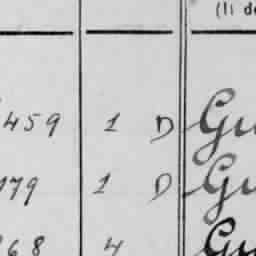 (li d
459 1 D Gu
179 1 D Gu
68 4 Gu